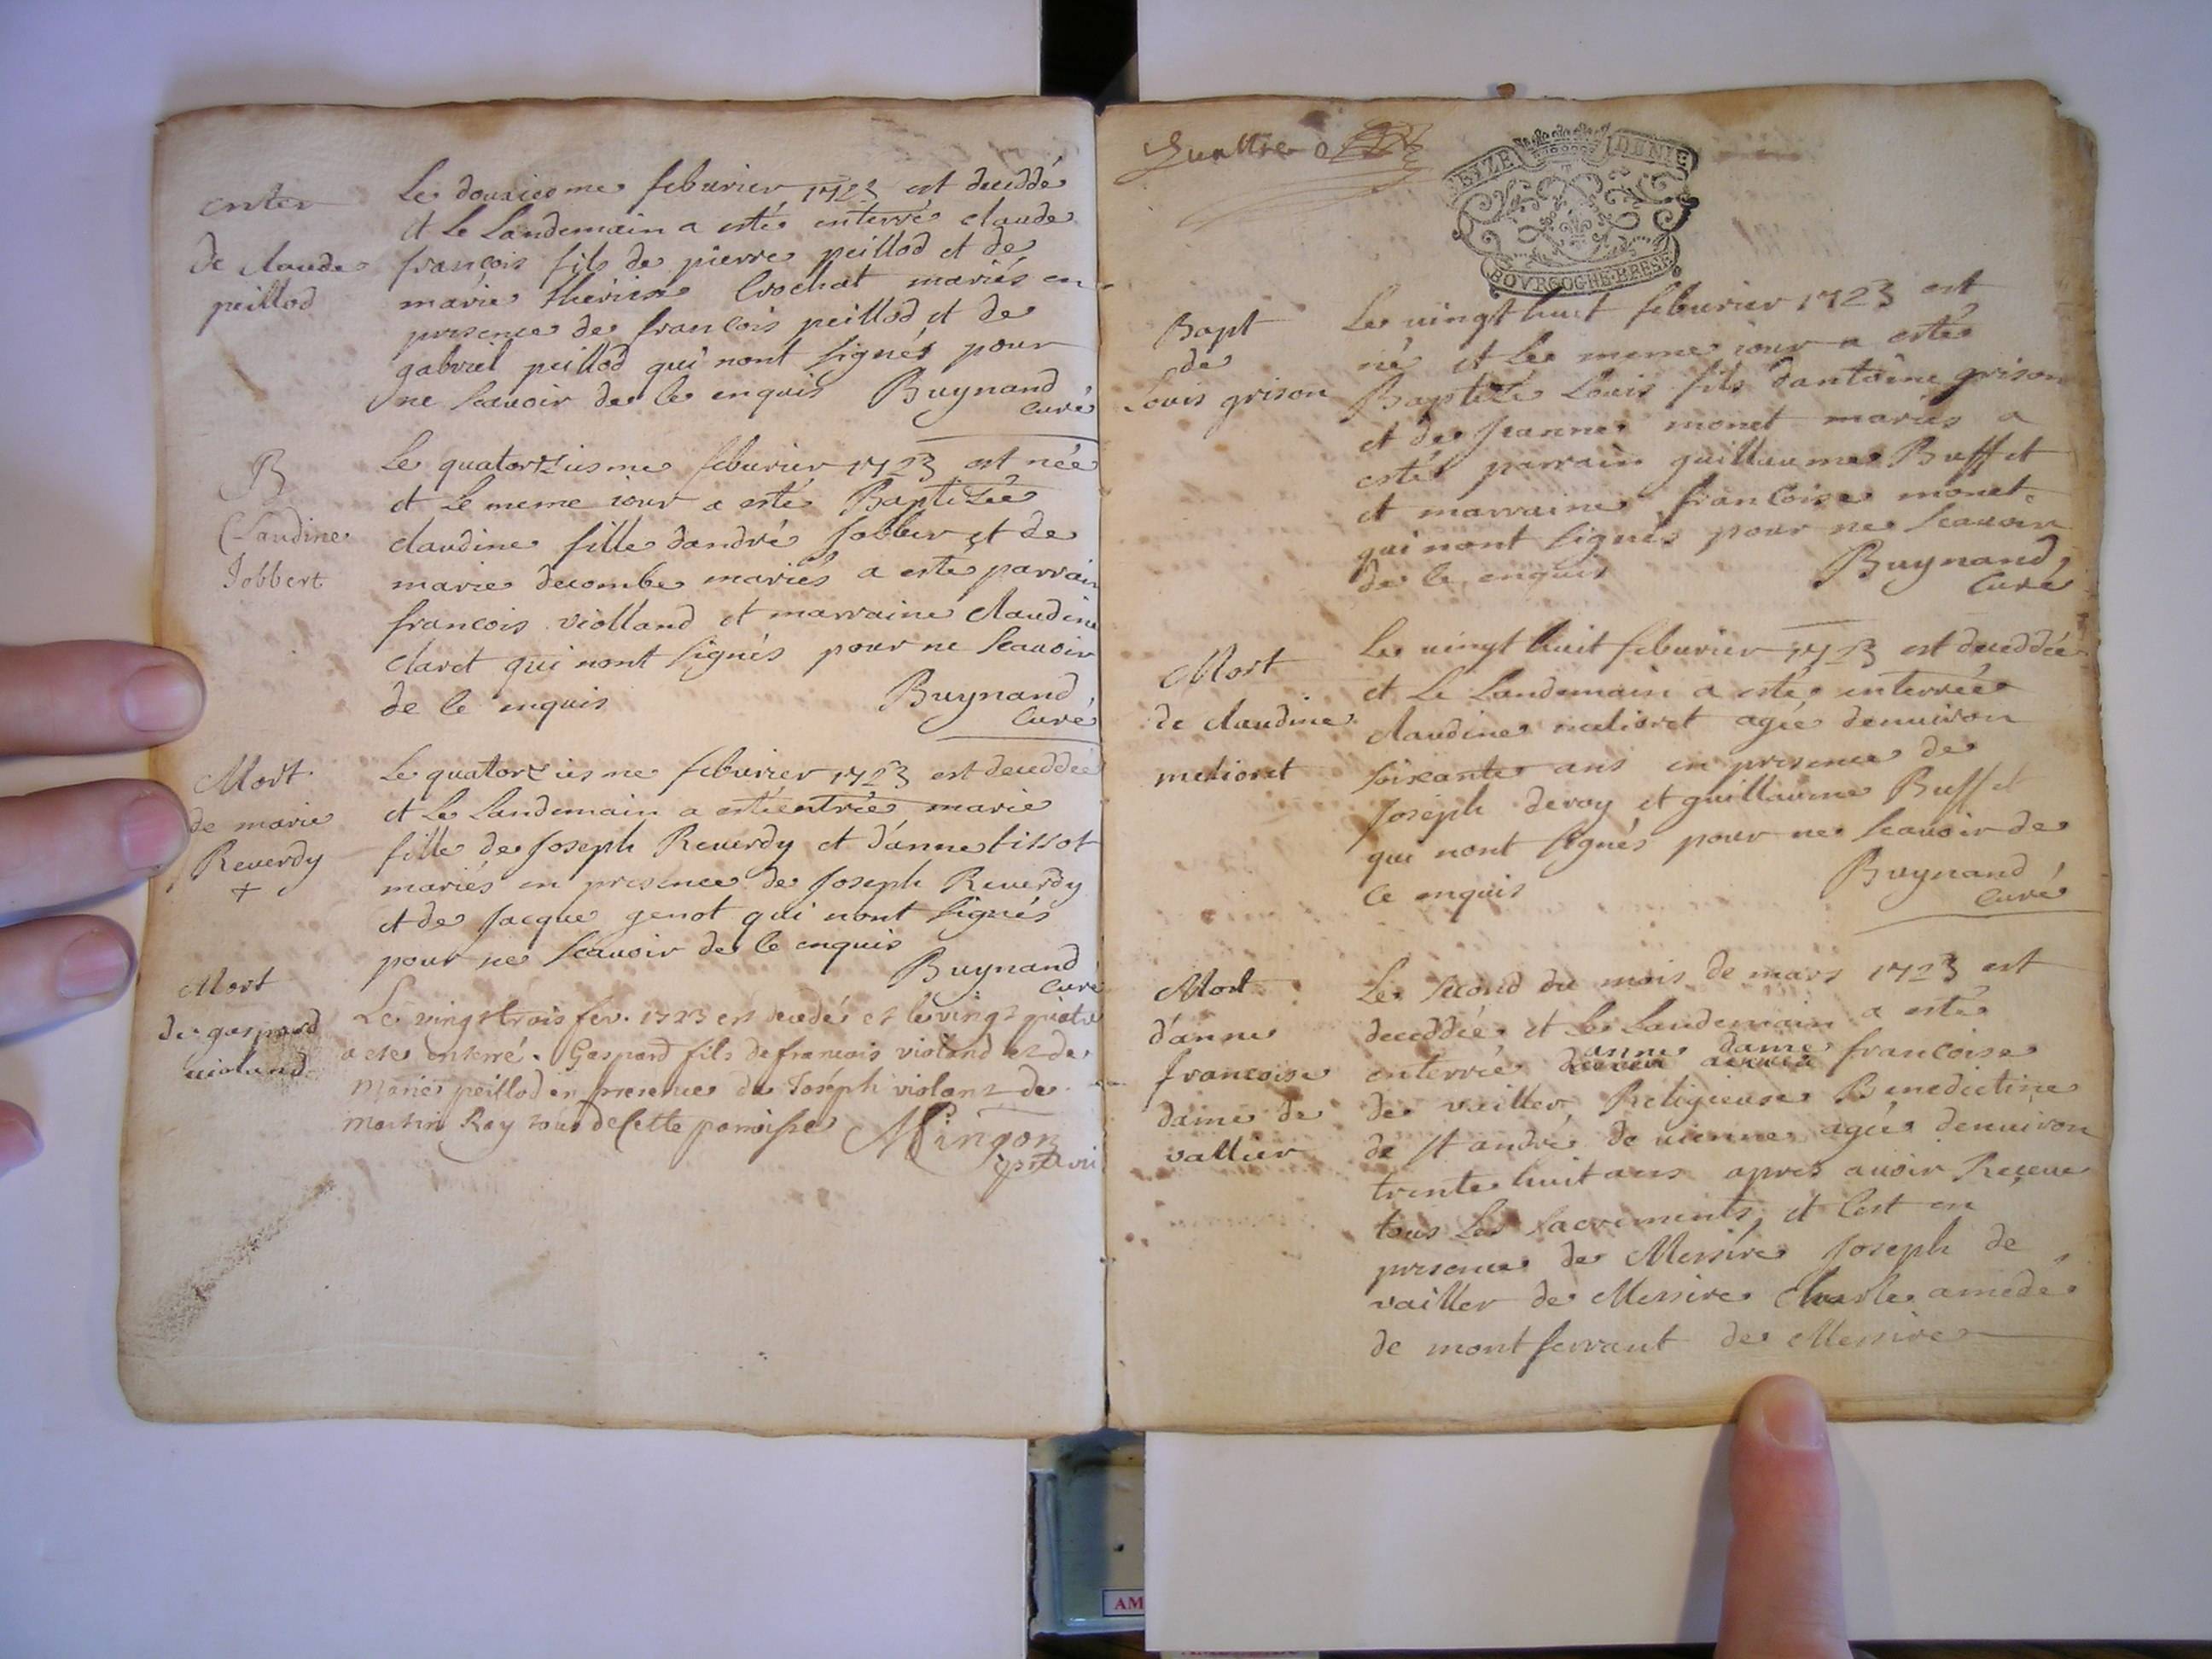 enter
de claude
peillod
Le douziesme feburier 1723 est deceddé
et le landemain a esté enterré claude
françois fils de pierre peillod et de
marie therese Crochat mariés en
presence de francois peillod et de
gabriel peillod qui nont signés pour
ne scauoir de ce enquis Buynand
curé
B
Claudine
Jobbert
Le quatorziesme feburier 1723 est née
et le meme iour a esté Baptizée
claudine fille dandré Jobber et de
marie decombe mariés a esté parrain
francois violland et marraine claudine
claret qui nont signés pour ne scauoir
de ce enquis Buynand
curé
Mort
de marie
Reuerdy
+
Le quatorziesme feburier 1723 est deceddée
et le landemain a esté entrée marie
fille de Joseph Reuerdy et d'anne tissot
mariés en presence de Joseph Reuerdy
et de Jacque genot qui nont signés
pour ne scauoir de ce enquis
Buynand
curé
Mort
de gaspard
uioland
Le vingt trois fev. 1723 est decedé et le vingt quatre
a esté enterré Gaspard fils de francois violand et de
Marie peillod en presence de Joséph violant de
Martin Ray tous de cette paroisse Mingon
Quattre
GENE
BOVRGOGNE.BRESSE
Bapt
de
Louis grison
Le uingt huit feburier 1723 est
né et le meme iour a esté
Baptizé Louis fils dantoine grison
et de Jeanne monet mariés a
esté parrain guillaume Buffet
et marraine francoise monet
qui nont signés pour ne scauoir
de ce enquis Buynand
Curé
Mort
de claudine
melioret
Le uingt huit feburier 1723 est deceddée
et le landemain a esté enterrée
claudine melioret agée denuiron
soixante ans en presence de
Joseph deroy et guillaume Buffet
qui nont signés pour ne scauoir de
ce enquis Buynand
curé
Mort
d'anne
francoise
dame de
vallier
Le second du mois de mars 1723 est
deceddée et le landemain a esté
enterrée anne dame francoise
de vailler Religieuse Benedictine
de st andré de uienne agée denuiron
trente huit ans apres auoir Receue
tous les sacrements, et cest en
presence de Messire Joseph de
vailler de Messire Charle amedé
de montferrant de Messire
AM